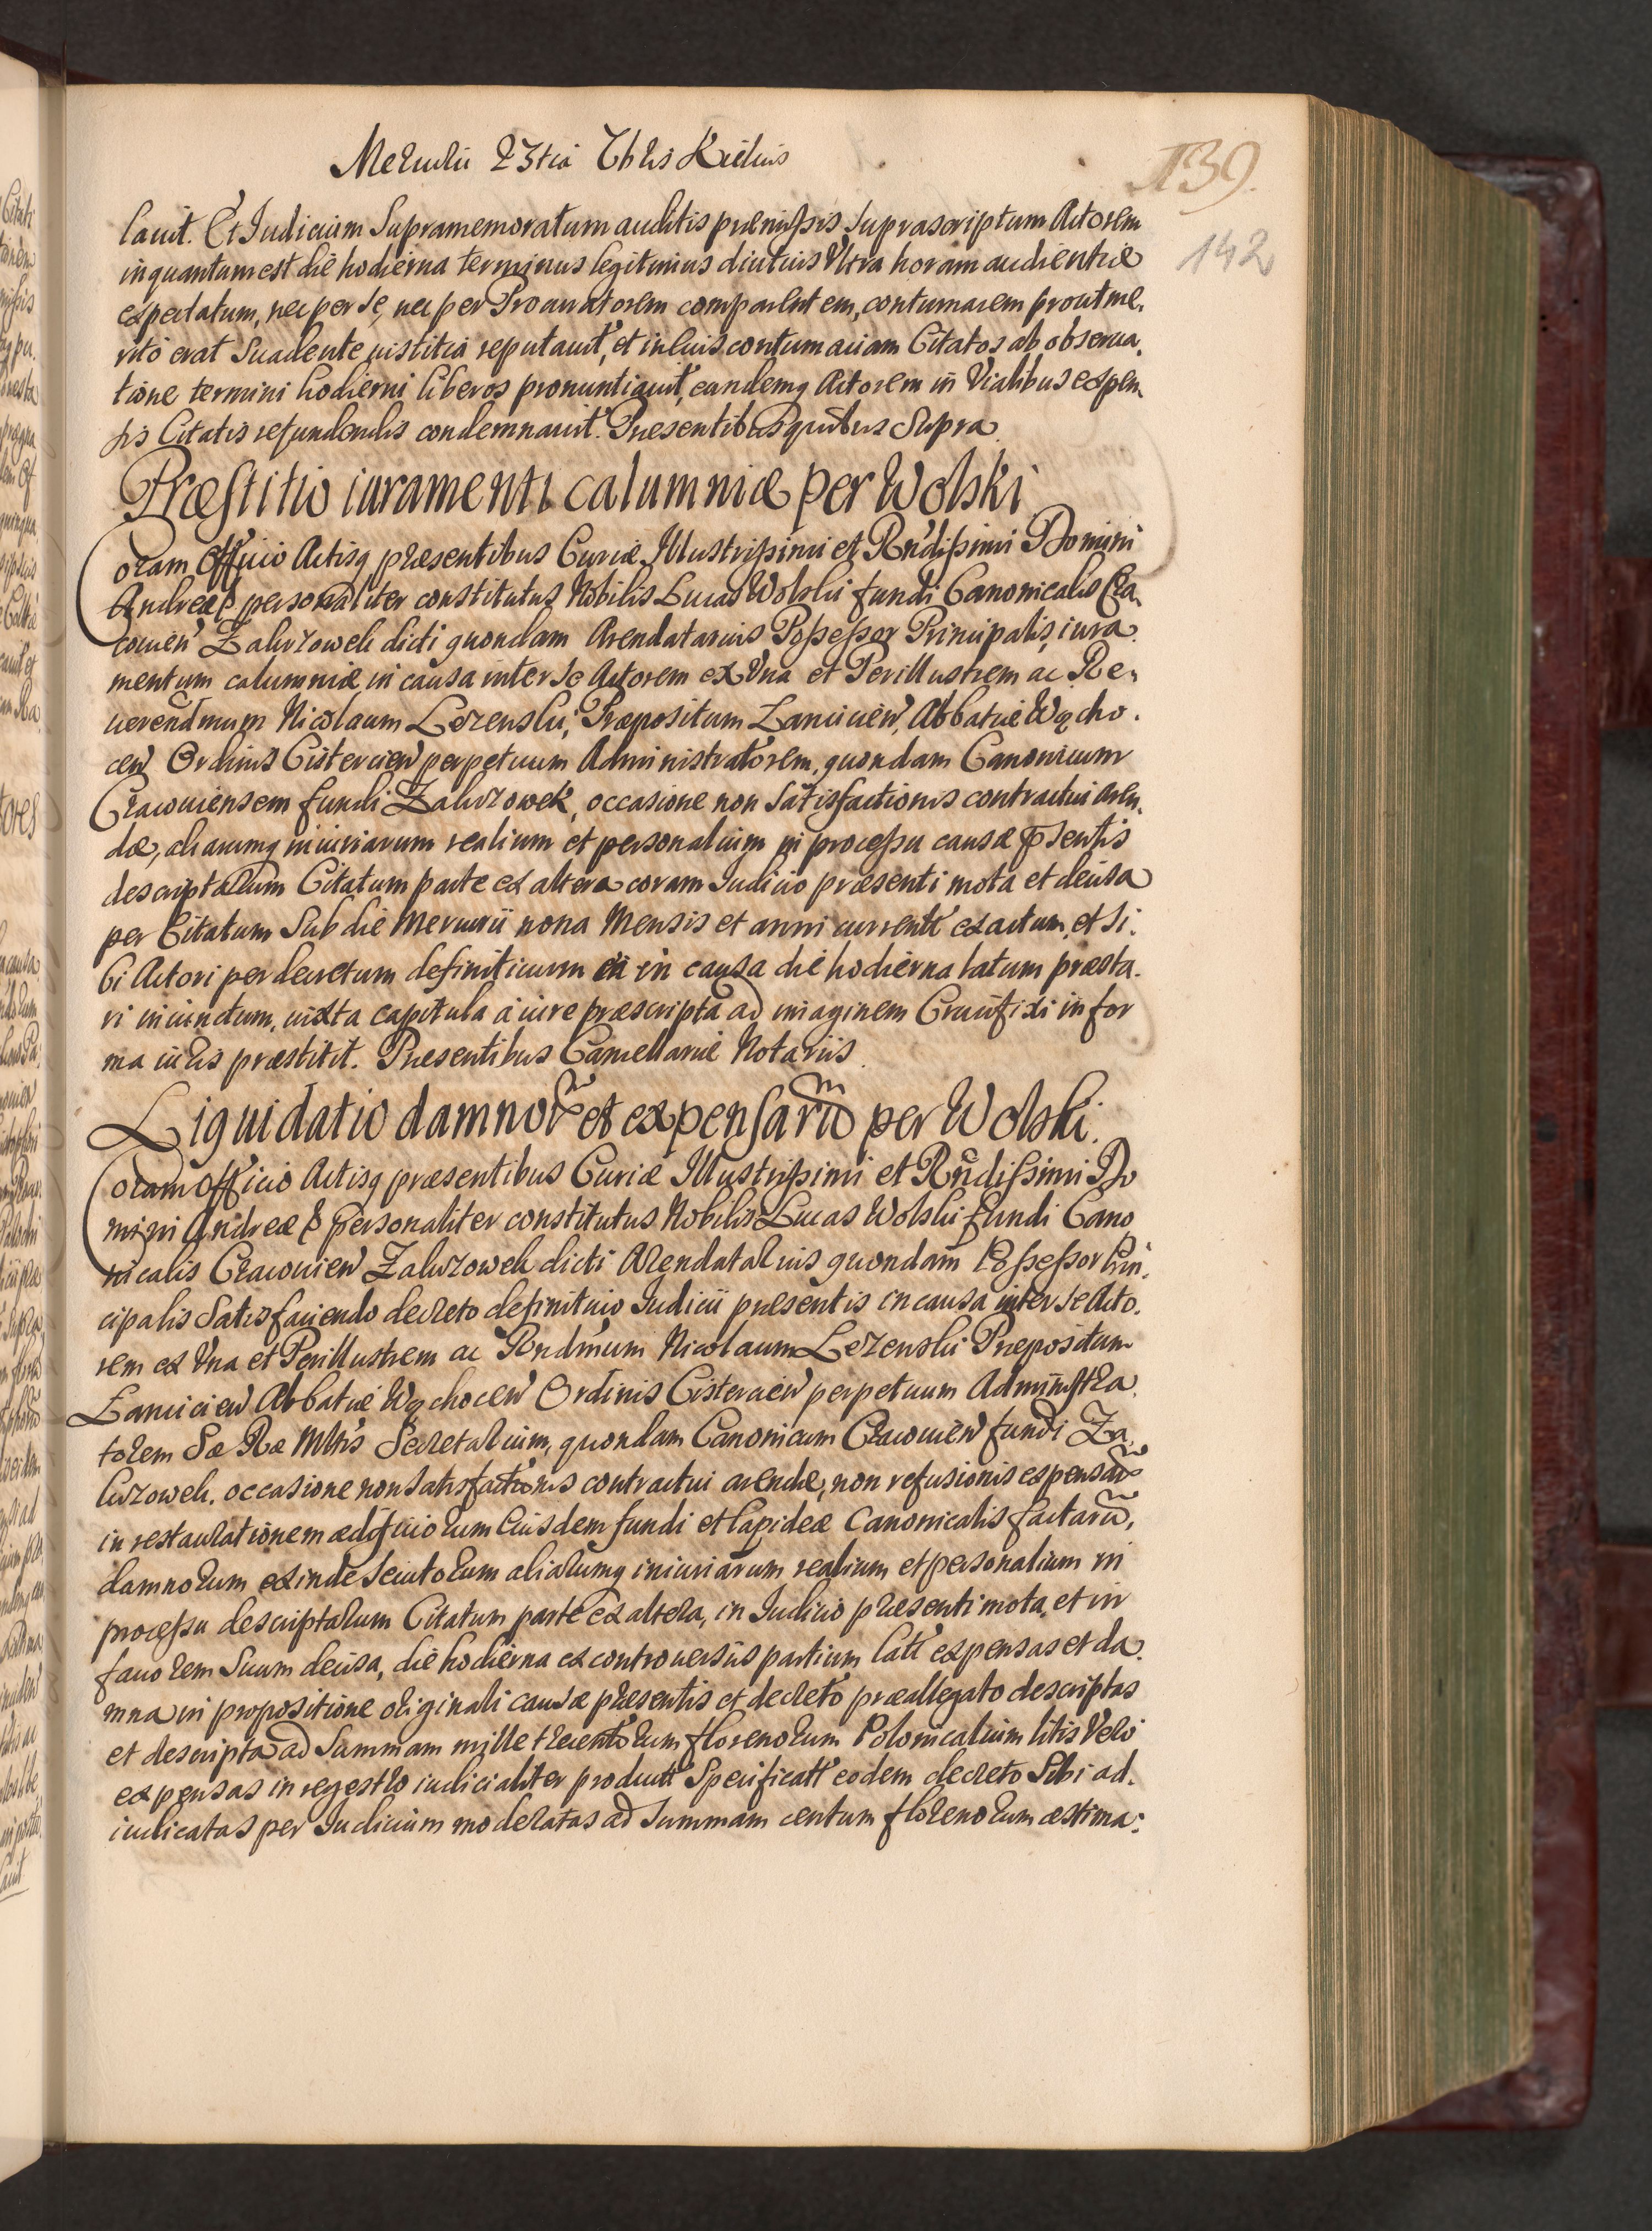 Mercurii 23tia 7bris Kielcis
139.
142
lauit. Et Iudicium Supramemoratum auditis præmissis Suprascriptum Actorem
inquantum est die hodierna terminus legitimus diutius Vltra horam audientiæ
expectatum, nec per se, nec per Procuratorem comparentem, contumacem prout me.
rito erat Suadente iustitia reputauit, et in huius contumaciam Citatos ab obserua.
tione termini hodierni liberos pronuntiauit, eandemq Actorem in Vialibus expen
sis Citatis refundendis condemnauit. Præsentibus quibus Supra
Præstitio iuramenti calumniæ per Wolski
Coram Officio Actisq præsentibus Curiæ Illustrissimi et Rndissimi Domini
Andreæ & personaliter constitutus Nobilis Lucas Wolski fundi Canonicalis Cra.
couien Zakrzowek dicti quondam Arendatarius Possessor Principalis, iura.
mentum calumniæ in causa inter se Actorem ex Vna et Perillustrem ac Re.
uerendmum Nicolaum Lezenski, Præpositum Lanicien, Abbatiæ Wącho.
cen Ordinis Cistercien perpetuum Administratorem, quondam Canonicum
Cracouiensem fundi Zakrzowek, occasione non Satisfactionis contractui aren.
dæ, aliarumq iniuriarum realium et personalium in processu causæ psentis
descriptarum Citatum parte ex altera coram Iudicio præsenti mota et decisa
per Citatum Sub die Mercurii nona Mensis et anni currentt exactum, et Si.
bi Actori per decretum definitiuum in causa die hodierna latum præsta.
ri iniunctum, iuxta capitula a iure præscripta ad imaginem Crucifixi in for
ma iuris præstitit. Præsentibus Cancellariæ Notariis.
Liquidatio damnor et expensaru per Wolski.
Coram Officio Actisq præsentibus Curiæ Illustrissimi et Rndissimi Do
mini Andreæ & personaliter constitutus Nobilis Lucas Wolski fundi Cano
nicalis Cracouien Zakrzowek dicti Arendatarius quondam Possessor Prin.
cipalis Satisfaciendo decreto definitiuo Iudicii præsentis in causa inter se Acto.
rem ex Vna et Perillustrem ac Rndmum Nicolaum Lezenski Præpositum
Lanicien Abbatiæ Wąchocen Ordinis Cistercien perpetuum Administra.
torem Sæ Ræ Mttis Secretarium, quondam Canonicum Cracouien fundi Za.
krzowek. occasione non Satisfactionis contractui arendæ, non refusionis expensar
in restaurationem ædificiorum Eiusdem fundi et lapideæ Canonicalis factaru,
damnorum exinde Secutorum aliarumq iniuriarum realium et personalium in
processu descriptarum Citatum parte ex altera, in Iudicio præsenti mota, et in
fauorem Suum decisa, die hodierna ex controuersiis partium latt expensas et da.
mna in propositione originali causæ præsentis et decreto præallegato descriptas
et descripta ad Summam mille trecentorum florenorum Polonicalium litis Vero
expensas in regestro iudicialiter productt Specificatt eodem decreto Sibi ad.
iudicatas per Iudicium moderatas ad Summam centum florenorum æstima: